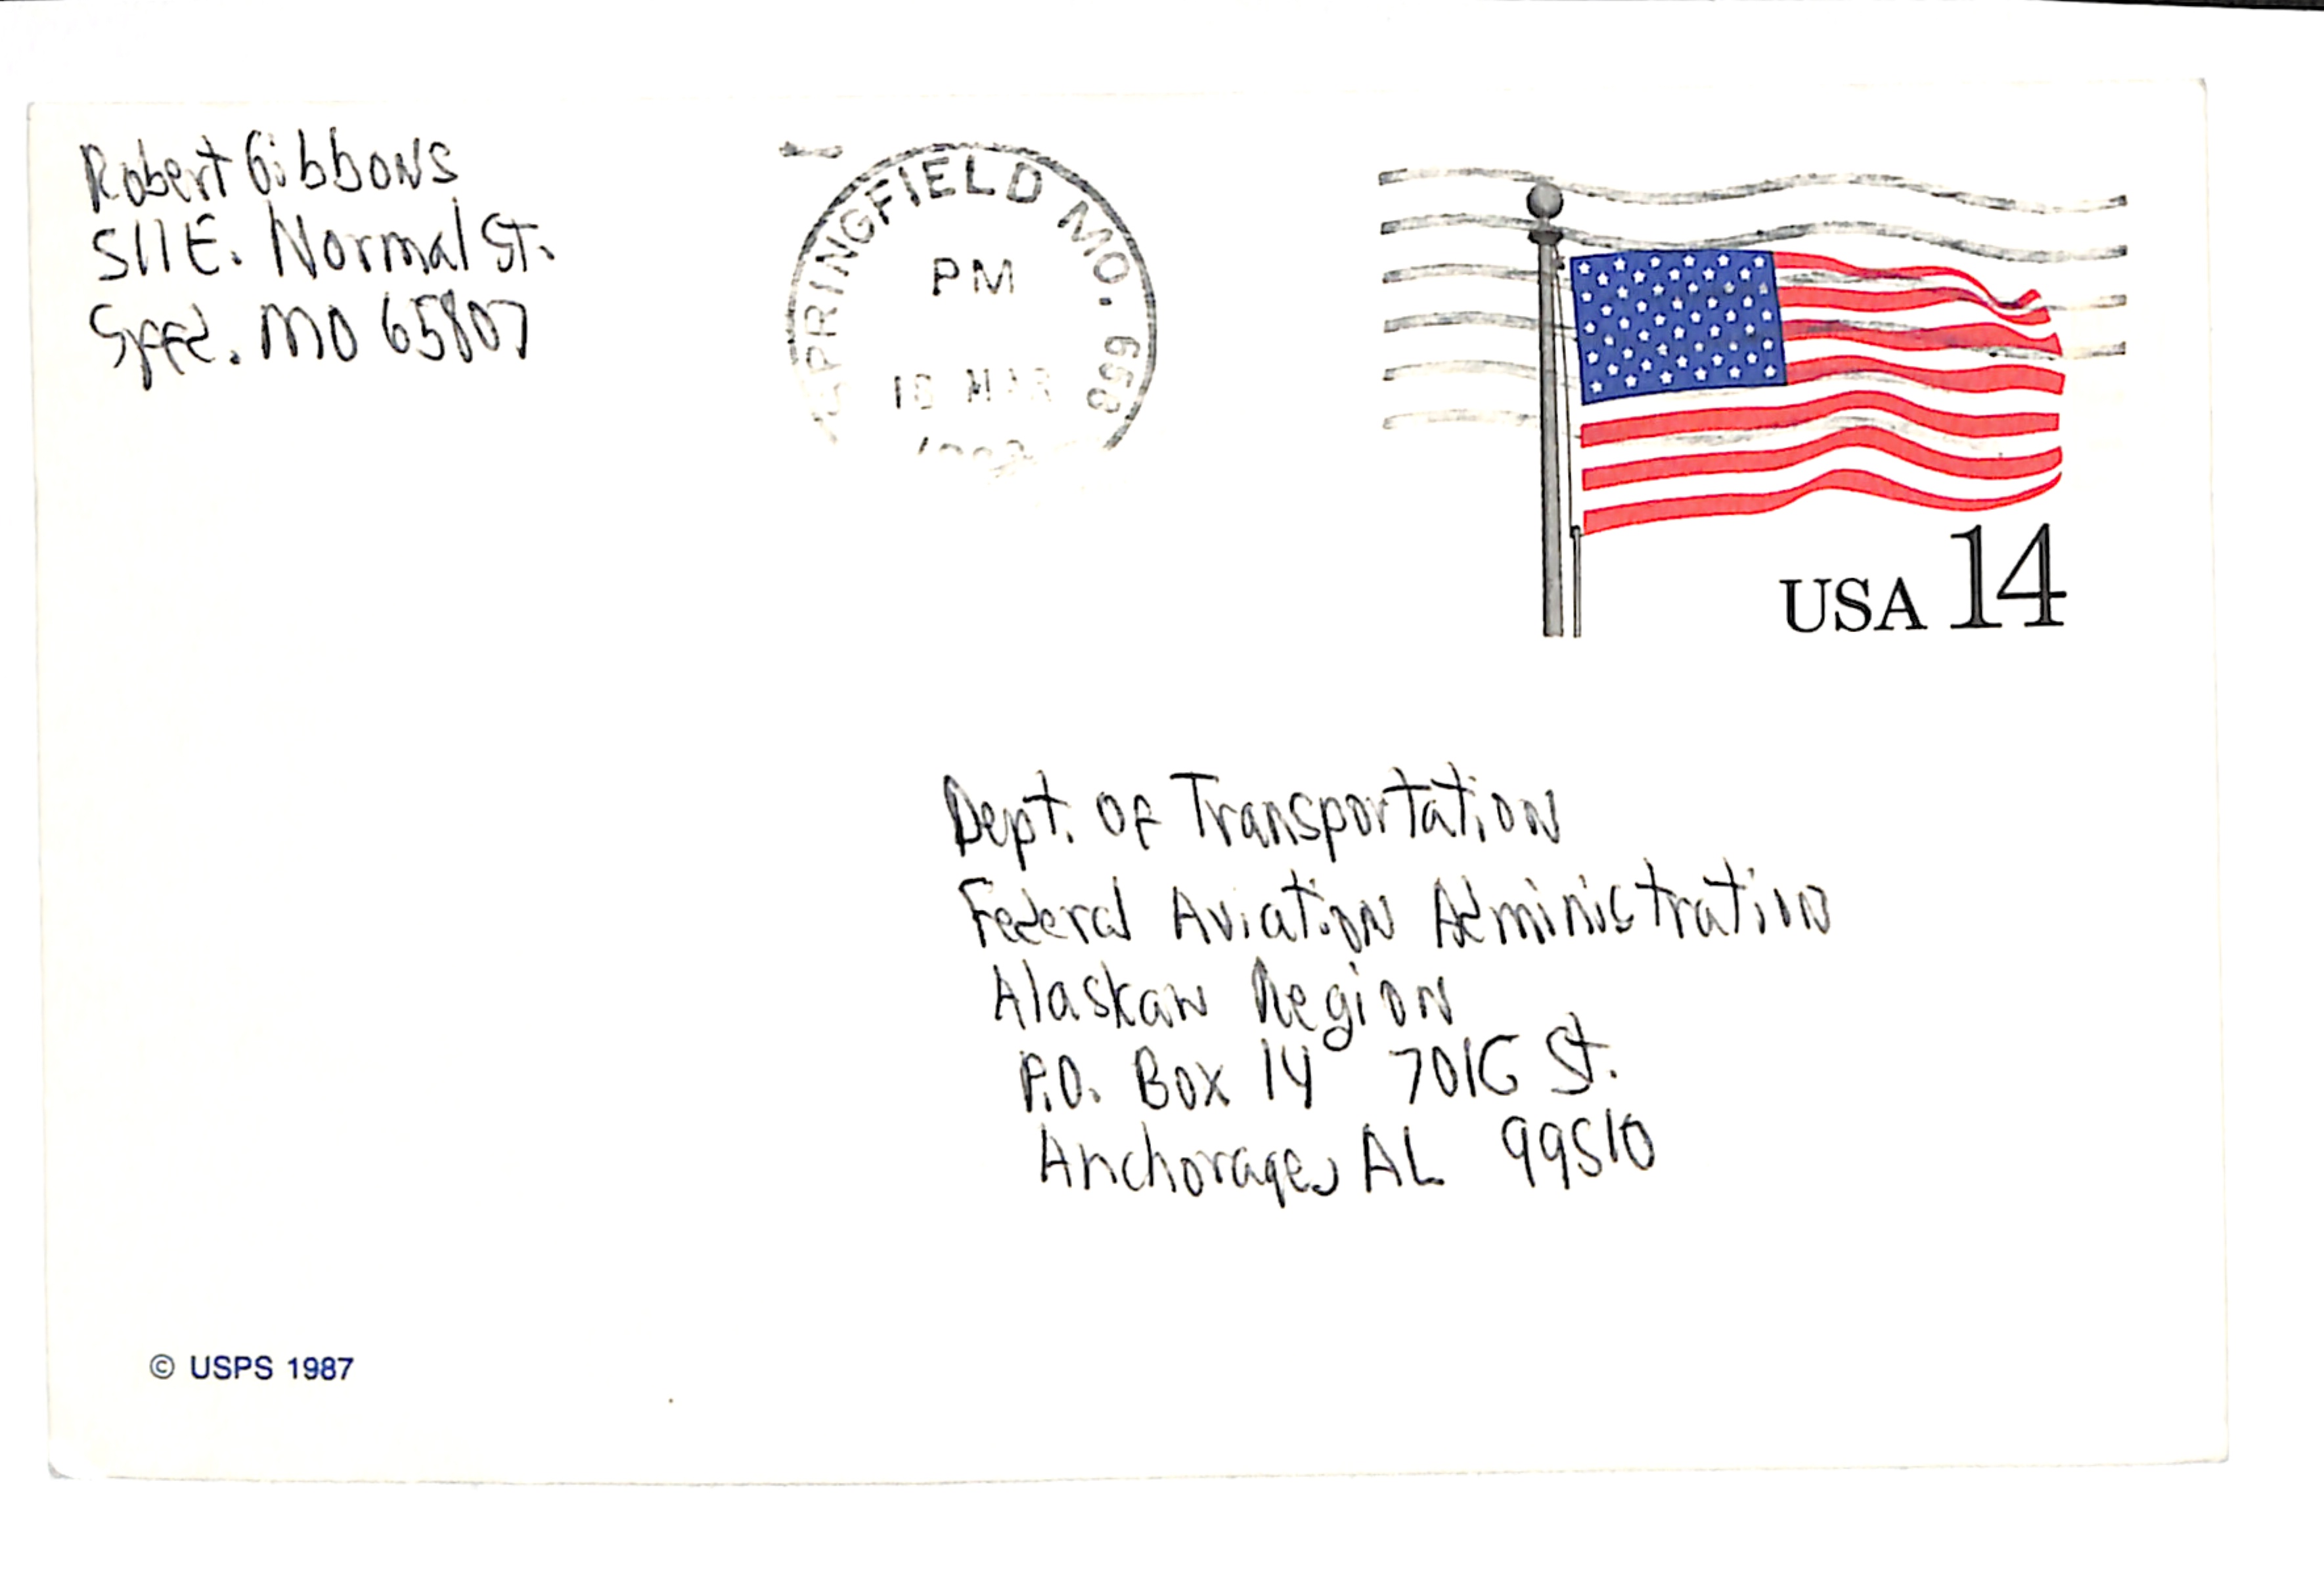 Robert Gibbons
511 E. Normal St.
Spfd. MO 65807
SPRINGFIELD MO. 658
PM
MAR
USA 14
Dept. of Transportation
Federal Aviation Administration
Alaskan Region
P.O. Box 14 701 C St.
Anchorage, AL 99510
© USPS 1987